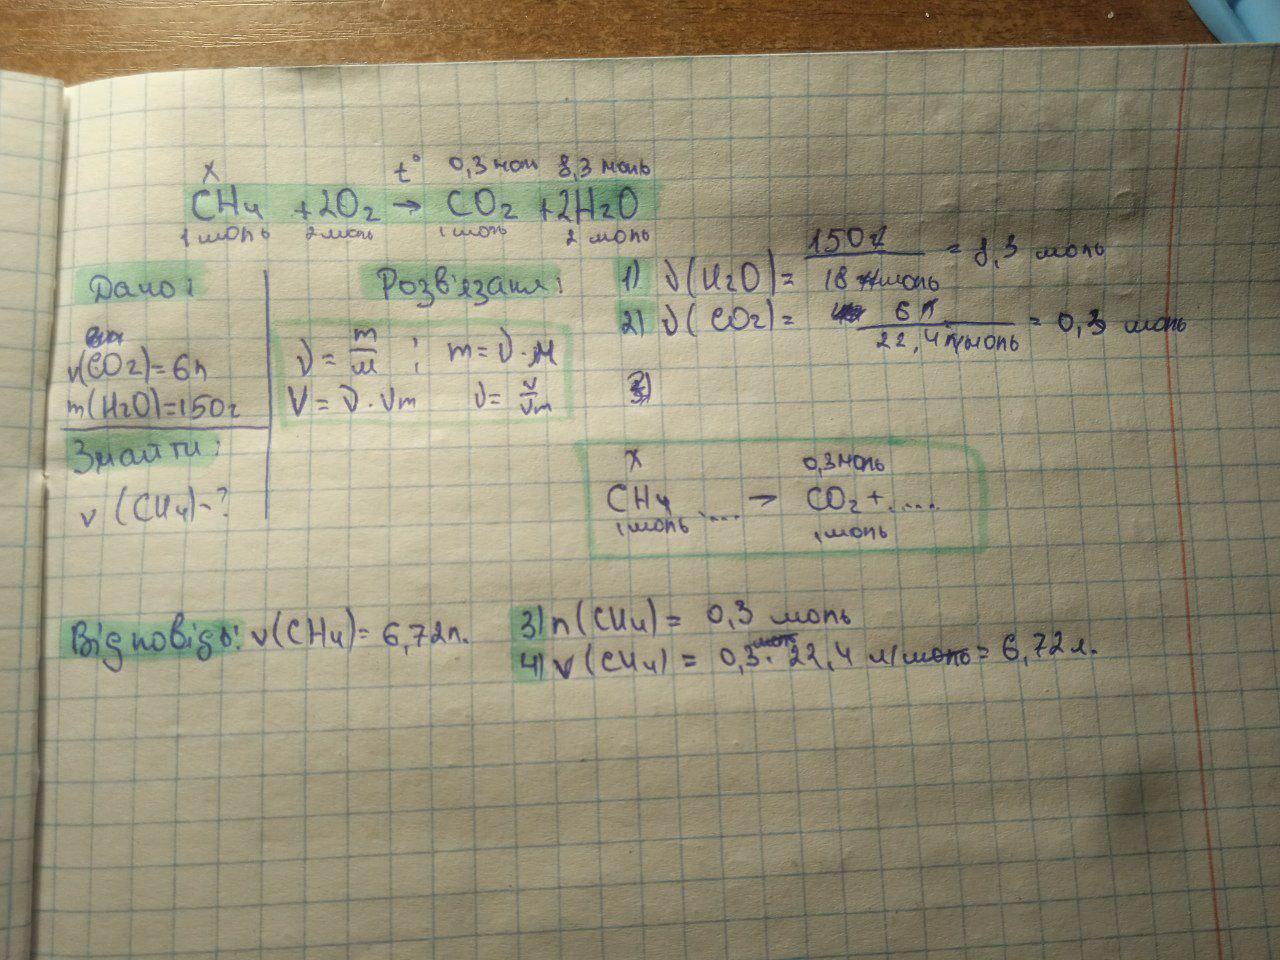 x t° 0,3 мол 8,3 моль
CH4 + 2O2 → CO2 + 2H2O
1 моль 2 моль 1 моль 2 моль
Дано:
v(CO2)=6л
m(H2O)=150г
Знайти:
v (CH4)-?
Розв'язаня:
ν = m/M ; m = ν · M
V = ν · Vm ν = v/Vm
1) ν(H2O)= 150г / 18 г/моль = 8,3 моль
2) ν(CO2)= 6л / 22,4 л/моль = 0,3 моль
x 0,3 моль
CH4 .... → CO2 + .....
1 моль 1 моль
3) n(CH4) = 0,3 моль
4) v (CH4) = 0,3 моль · 22,4 л/моль = 6,72 л.
Відповідь: v(CH4)= 6,72л.